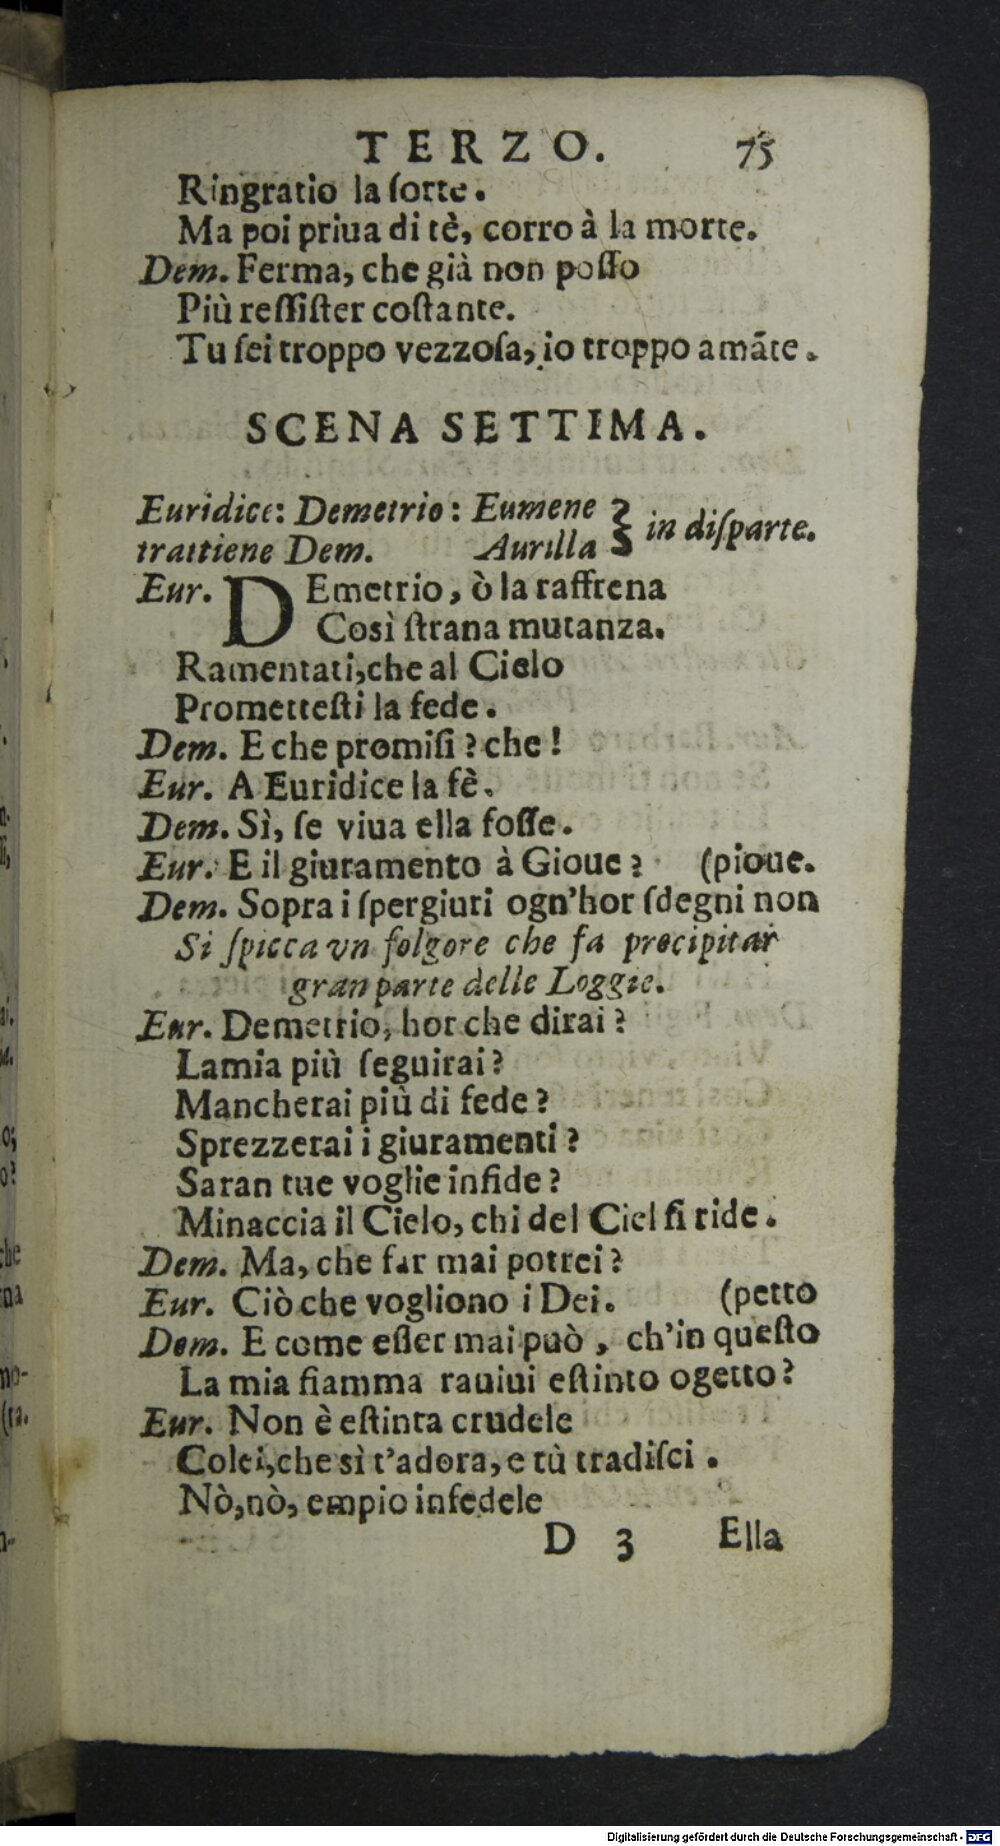 TERZO. 75
Ringratio la ſorte.
Ma poi priua di tè, corro à la morte.
Dem. Ferma, che già non poſſo
Più reſſiſter coſtante.
Tu ſei troppo vezzoſa, io troppo amāte.
SCENA SETTIMA.
Euridice: Demetrio: Eumene } in diſparte.
trattiene Dem. Aurilla
Eur. DEmetrio, ò la raffrena
Così ſtrana mutanza.
Ramentati, che al Cielo
Prometteſti la fede.
Dem. E che promiſi? che!
Eur. A Euridice la fè.
Dem. Sì, ſe viua ella foſſe.
Eur. E il giuramento à Gioue? (pioue.
Dem. Sopra i ſpergiuri ogn'hor ſdegni non
Si ſpicca vn folgore che fa precipitar
gran parte delle Loggie.
Eur. Demetrio, hor che dirai?
Lamia più ſeguirai?
Mancherai più di fede?
Sprezzerai i giuramenti?
Saran tue voglie infide?
Minaccia il Cielo, chi del Ciel ſi ride.
Dem. Ma, che far mai potrei?
Eur. Ciò che vogliono i Dei. (petto
Dem. E come eſſer mai può, ch'in queſto
La mia fiamma rauiui eſtinto ogetto?
Eur. Non è eſtinta crudele
Colei, che sì t'adora, e tù tradiſci.
Nò, nò, empio infedele
D 3 Ella
Digitalisierung gefördert durch die Deutsche Forschungsgemeinschaft - DFG